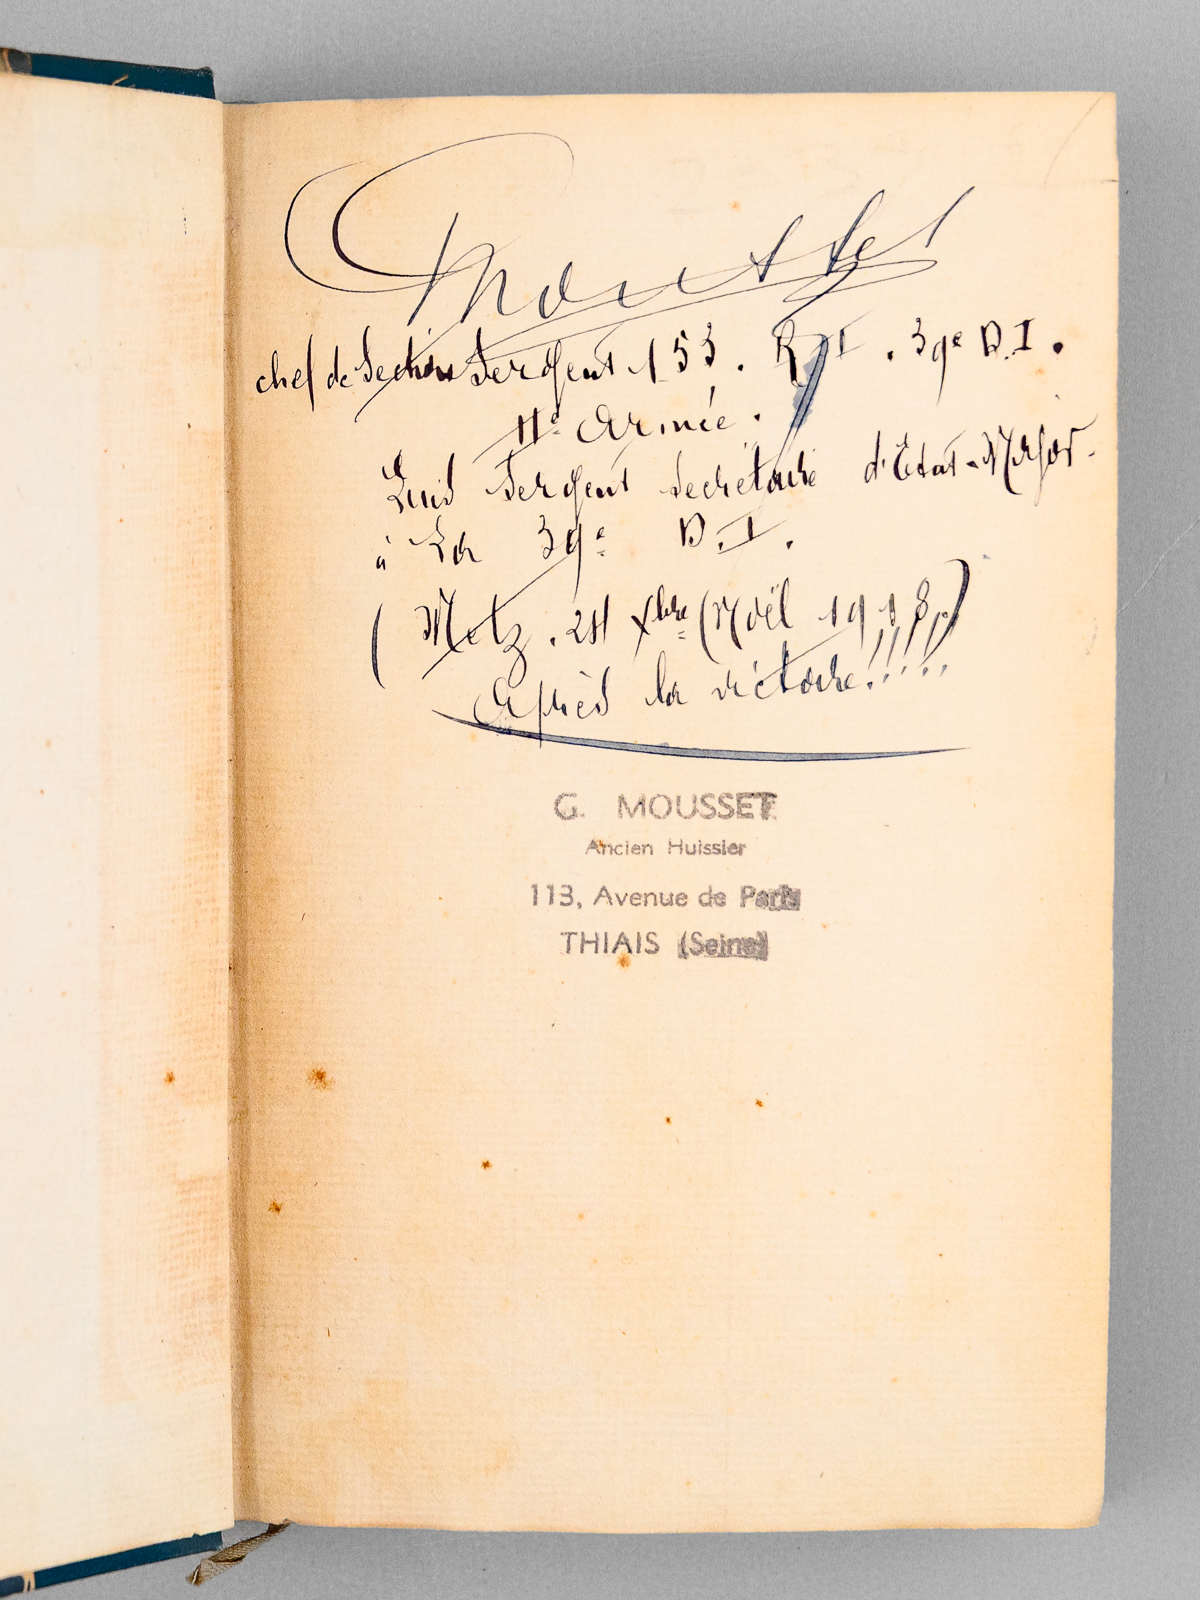 GMousset
chef de Section Sergent 153. R.I. 39e D.I.
IIe Armée.
Puis Sergent Secrétaire d'État-Major.
à La 39e D.I.
(Metz. 24 Xbre (Noël 1918)
Après la victoire!!!!!
G. MOUSSET
Ancien Huissier
113, Avenue de Paris
THIAIS (Seine)